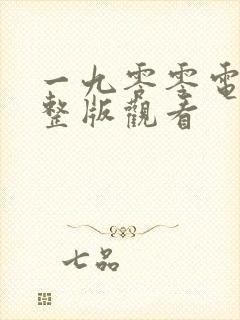 一九零零電
整版觀看
七品